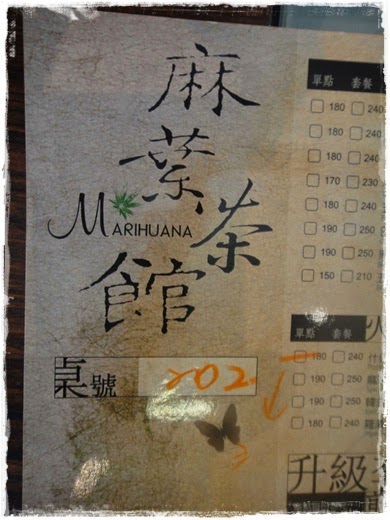 麻葉茶館
MARIHUANA
桌號 202
單點 套餐
180 240
180 240
180 240
170 230
180 240
190 250
190 250
150 210
火
單點 套餐
180 240
190 250
190 250
180 240
升級